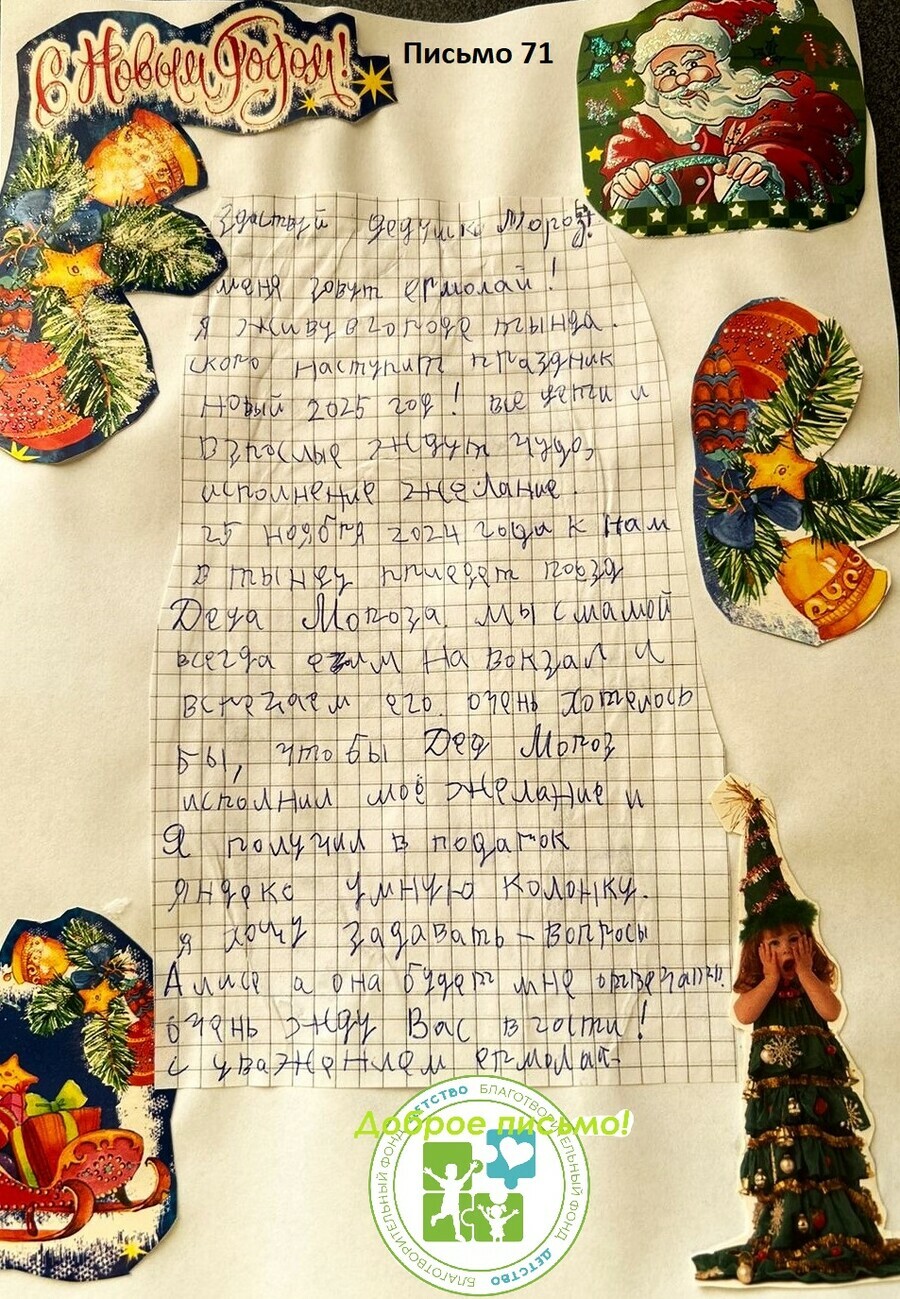 С Новым Годом!
Письмо 71
Здаствуй дедушка Мороз!
меня зовут ермолай!
я живу в городе тында.
скоро наступит праздник
новый 2025 год! все дети и
взрослые ждут чудо,
исполнение желание.
25 ноября 2024 года к нам
в тынду приедет поезд
Деда Мороза. мы с мамой
всегда едим на вокзал и
встречаем его. очень хотелось
бы, что бы Дед Мороз
исполнил моё желание и
я получил в подарок
яндекс умную колонку.
я хочу задавать-вопросы
Алисе а она будет мне отвечать.
очень жду Вас в гости!
с уважением ермолай
Доброе письмо!
БЛАГОТВОРИТЕЛЬНЫЙ ФОНД ДЕТСТВО БЛАГОТВОРИТЕЛЬНЫЙ ФОНД ДЕТСТВО